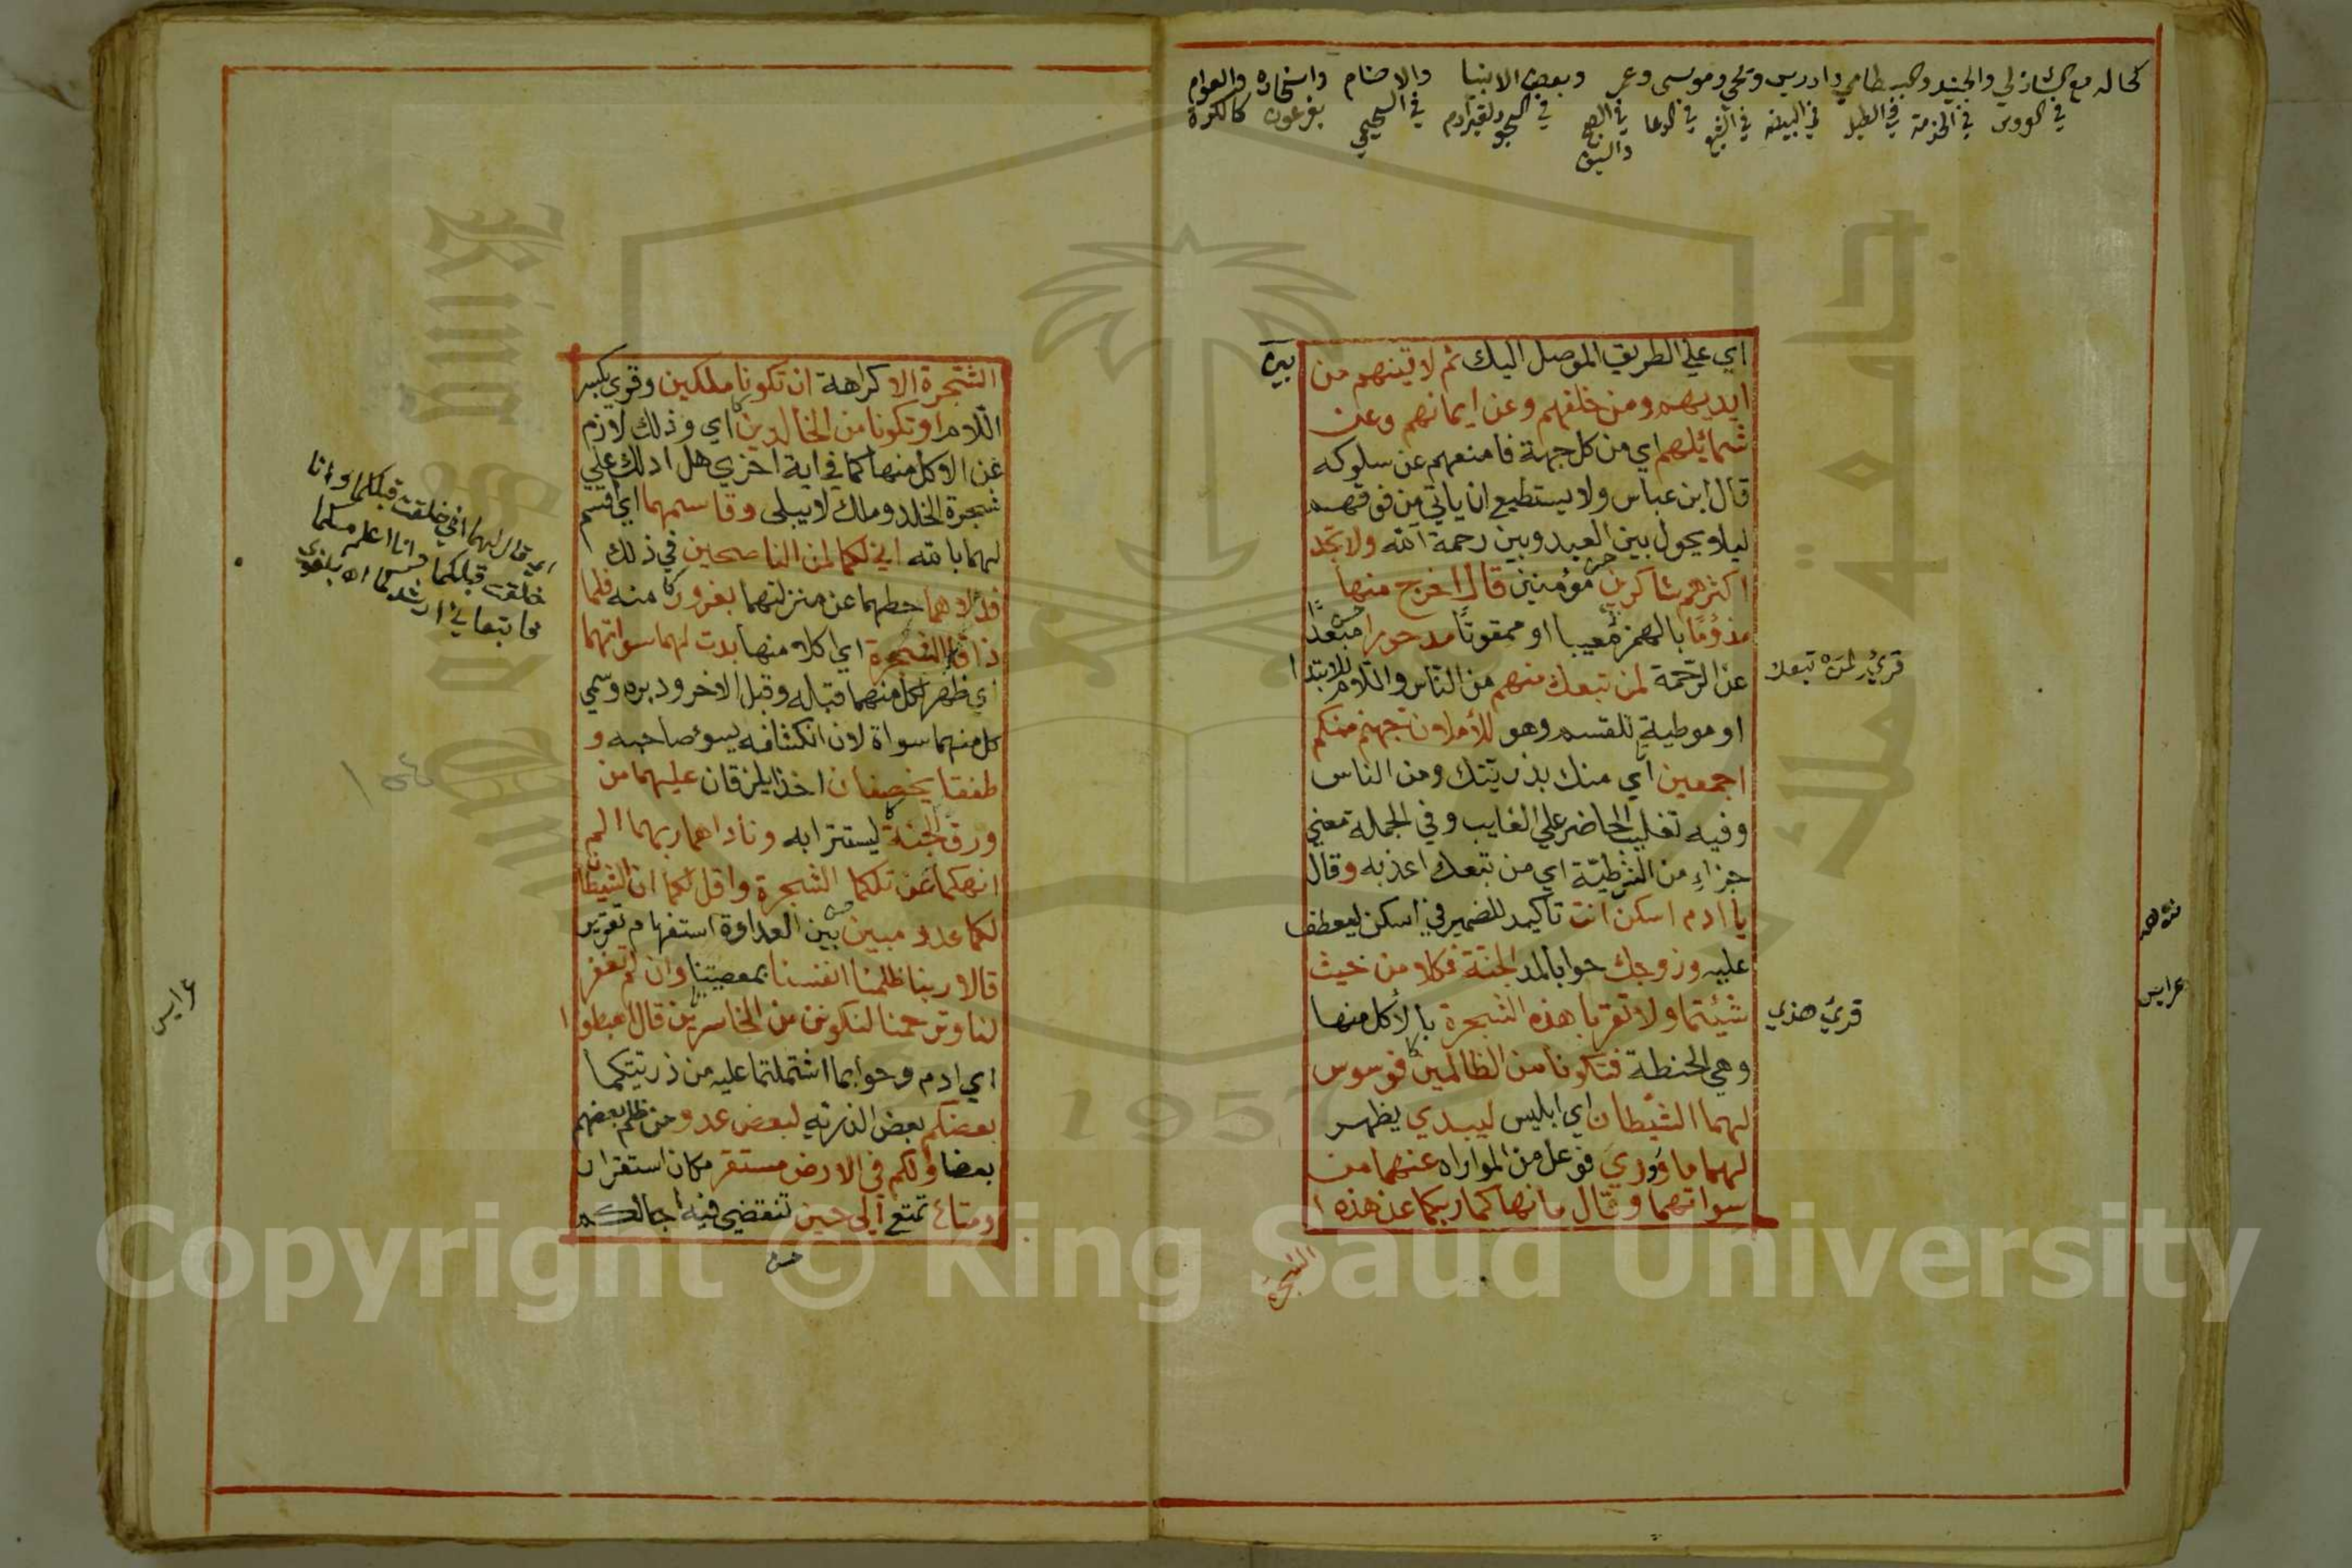 كحاله مع الشاذلي والجنيد والبسطامي وادريس ويحي وموسى وعمر وبعض الانبيا والاصنام واشخاره والعوام
اي علي الطريق الموصل اليك ثم لاتينهم من
ايديهم ومن خلفهم وعن ايمانهم وعن
شمائلهم اي من كل جهة فامنعهم عن سلوكه
قال ابن عباس ولا يستطيع ان ياتي من فوقهم
ليلا يحول بين العبد وبين رحمة الله ولا تجد
اكثرهم شاكرين مؤمنين قال اخرج منها
مذؤما بالهمز معيبا او ممقوتا مدحورا مبعدا
عن الرحمة لمن تبعك منهم من الناس واللام للابتدا
او موطية للقسم وهو لأملان جهنم منكم
اجمعين اي منك بذريتك ومن الناس
وفيه تغليب الحاضر علي الغايب وفي الجملة معني
جزاء من الشرطية اي من تبعك اعذبه وقال
يا ادم اسكن انت تاكيد للضمير في اسكن ليعطف
عليه وزوجك حوا بالمد الجنة فكلا من حيث
شيئتما ولا تقربا هذه الشجرة بالأكل منها
وهي الحنطة فتكونا من الظالمين فوسوس
لهما الشيطان اي ابليس ليبدي يظهر
لهما ما ووري فوعل من المواراه عنهما من
سواتهما وقال ما نهاكما ربكما عن هذه ا
الشجرة
قرئ لمن تبعك
قرئ هذي
عرايس
الشجرة الا كراهة ان تكونا ملكين وقري بكسر
اللام او تكونا من الخالدين اي وذلك لازم
عن الاكل منها كما في اية اخري هل ادلك علي
شجرة الخلد وملك لا يبلى وقاسمهما اي اقسم
لهما بالله اني لكما لمن الناصحين في ذلك
فدلاهما حطهما عن منزلتهما بغرور منه فلما
ذاقا الشجرة اي اكلا منها بدت لهما سواتهما
اي ظهر لكل منهما قباله وقبل الاخر ودبره وسمي
كل منهما سواة لان انكشافه يسوء صاحبه و
طفقا يخصفان اخذا يلزقان عليهما من
ورق الجنة ليستترا به وناداهما ربهما الم
انهكما عن تلكما الشجرة واقل لكما ان الشيطان
لكما عدو مبين بين العداوة استفهام تقرير
قالا ربنا ظلمنا انفسنا بمعصيتنا وان لم تغفر
لنا وترحمنا لنكونن من الخاسرين قال اهبطوا
اي ادم وحوا بما اشتملتما عليه من ذريتكما
بعضكم بعض الذرية لبعض عدو من ظلم بعضهم
بعضا ولكم في الارض مستقر مكان استقرار
ومتاع تمتع الي حين تنقضي فيه اجالكم
اي قال لهما اني خلقت قبلكما وانا
عرايس